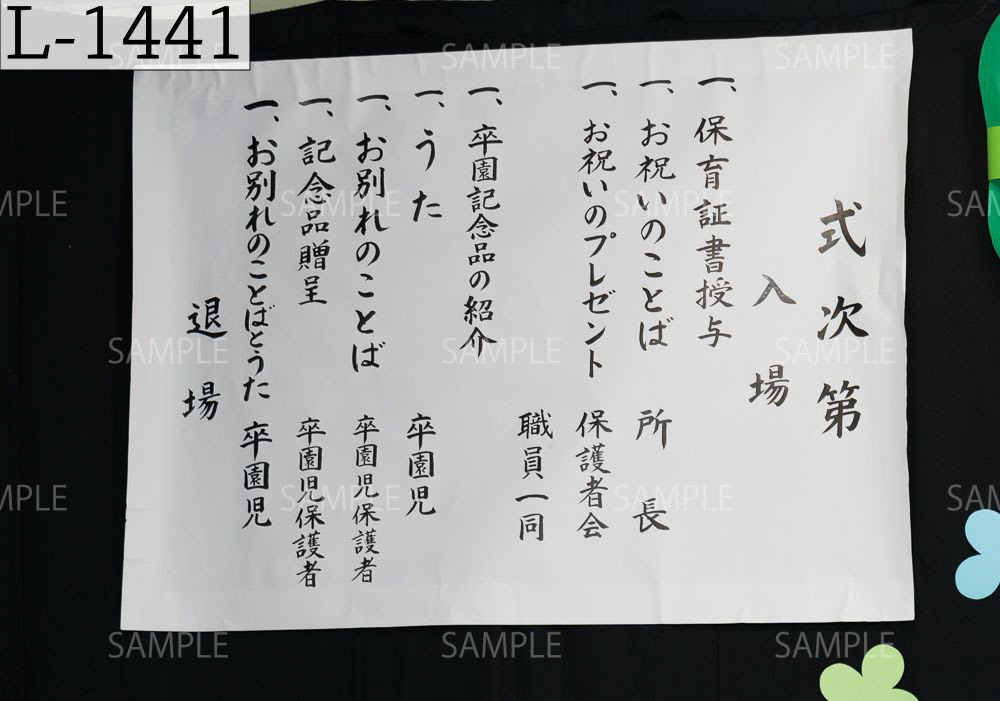 L-1441
式次第
入場
一、保育証書授与
一、お祝いのことば 所長
一、お祝いのプレゼント 保護者会
職員一同
一、卒園記念品の紹介
一、うた 卒園児
一、お別れのことば 卒園児保護者
一、記念品贈呈 卒園児保護者
一、お別れのことばとうた 卒園児
退場
SAMPLE
SAMPLE
SAMPLE
SAMPLE
SAMPLE
SAMPLE
SAMPLE
SAMPLE
SAMPLE
SAMPLE
SAMPLE
SAMPLE
SAMPLE